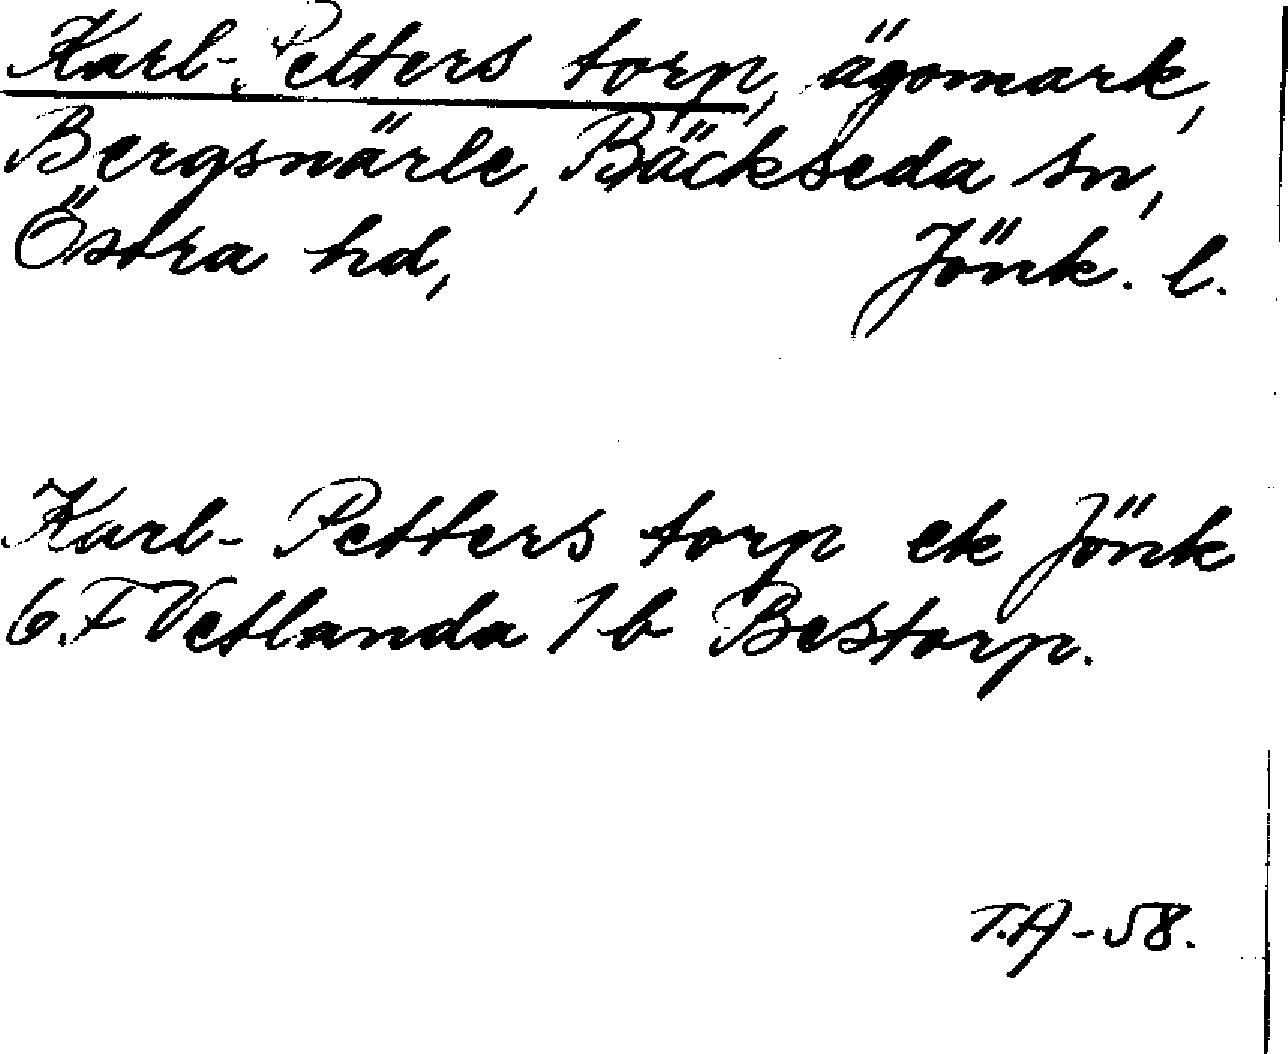 Karl-Petters torp, ägomark,
Bergsnärle, Bäckseda sn,
Östra hd, Jönk. l.
Karl-Petters torp ek Jönk
6.F Vetlanda 1 b Bestorp.
T.A-58.